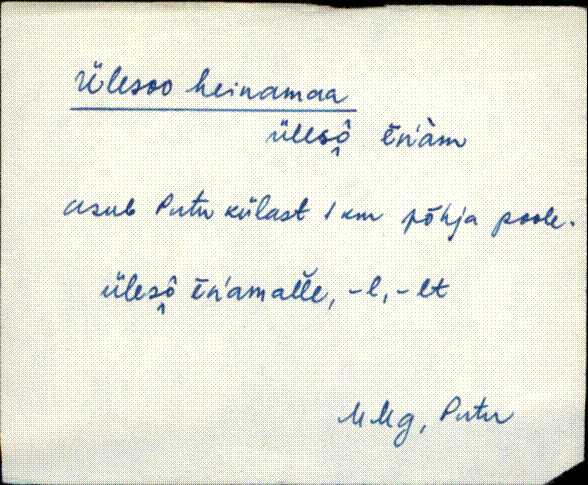 Ülesoo heinamaa
ülesô̭ ēn'àm
asub Putu külast 1 km põhja poole.
ülesô̭ ēn'amal̆le, -l, -lt
MMg, Putu